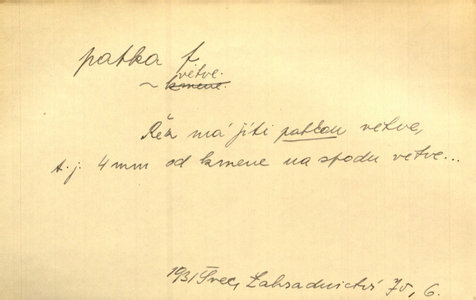 patka f
větve.
~ kmene.
Řez má jíti patkou větve,
t. j. 4 mm od kmene na spodu větve...
1931 Švec, Zahradnictví IV, 6.